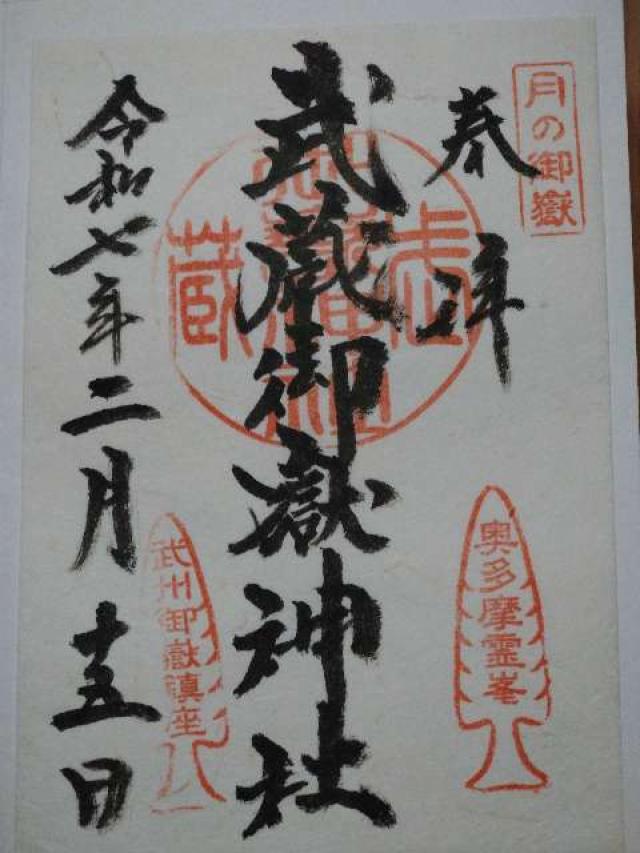 月の御嶽
奉拝
奥多摩霊峯
武蔵御嶽神社
武蔵
武州御嶽鎮座
令和七年二月十五日